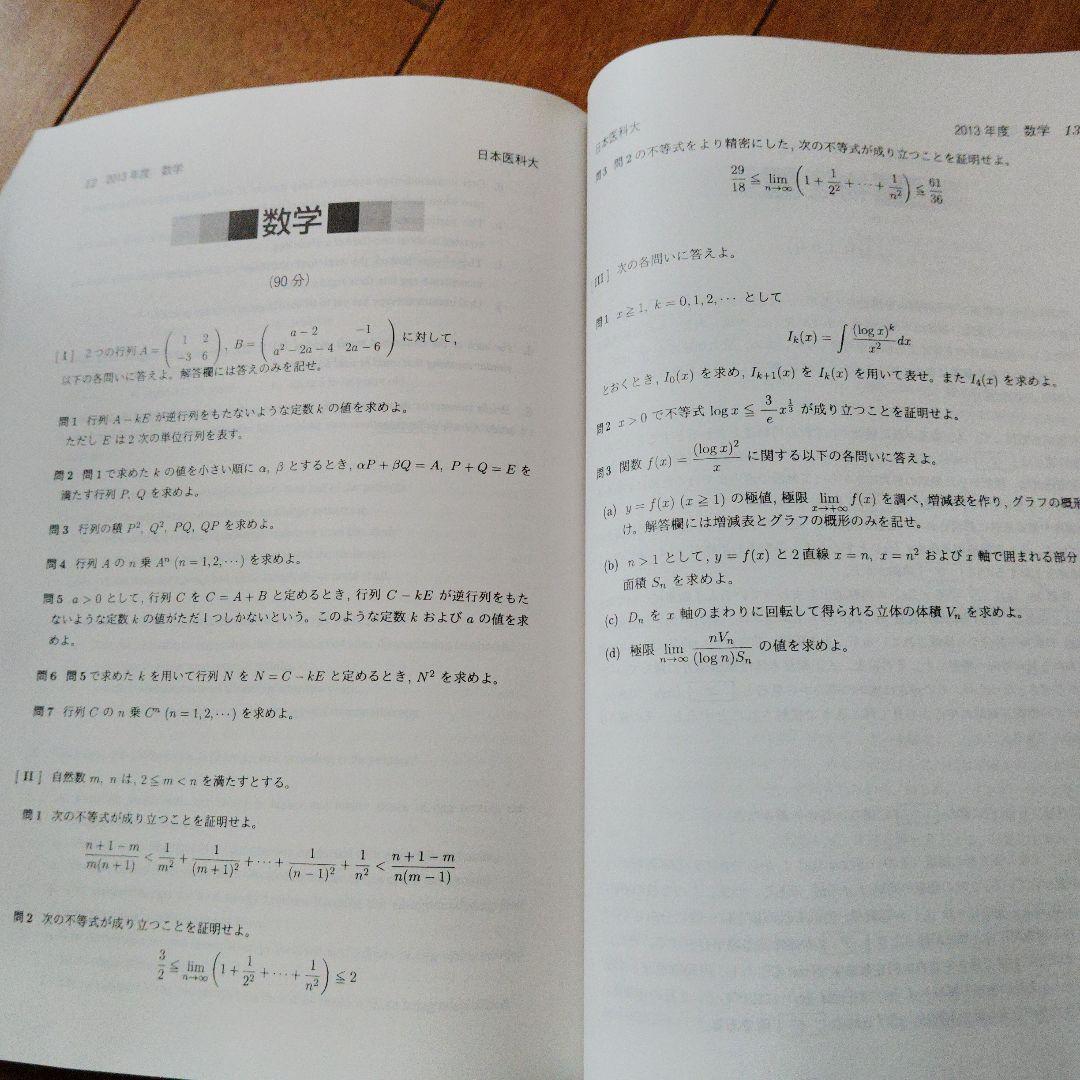 12 2013年度 数学
日本医科大
数学
(90分)
[I] 2つの行列 A = ( 1 2 / -3 6 ), B = ( a-2 -1 / a²-2a-4 2a-6 ) に対して,
以下の各問いに答えよ。解答欄には答えのみを記せ。
問1 行列 A-kE が逆行列をもたないような定数 k の値を求めよ。
ただし E は2次の単位行列を表す。
問2 問1で求めた k の値を小さい順に α, β とするとき, αP+βQ=A, P+Q=E を
満たす行列 P, Q を求めよ。
問3 行列の積 P², Q², PQ, QP を求めよ。
問4 行列 A の n 乗 Aⁿ (n=1,2,⋯) を求めよ。
問5 a>0 として, 行列 C を C=A+B と定めるとき, 行列 C-kE が逆行列をもた
ないような定数 k の値がただ1つしかないという。このような定数 k および a の値を求
めよ。
問6 問5で求めた k を用いて行列 N を N=C-kE と定めるとき, N² を求めよ。
問7 行列 C の n 乗 Cⁿ (n=1,2,⋯) を求めよ。
[II] 自然数 m, n は, 2≦m<n を満たすとする。
問1 次の不等式が成り立つことを証明せよ。
(n+1-m)/(m(n+1)) < 1/m² + 1/(m+1)² + ⋯ + 1/(n-1)² + 1/n² < (n+1-m)/(n(m-1))
問2 次の不等式が成り立つことを証明せよ。
3/2 ≦ lim n→∞ (1 + 1/2² + ⋯ + 1/n²) ≦ 2
日本医科大
2013年度 数学 13
問3 問2の不等式をより精密にした, 次の不等式が成り立つことを証明せよ。
29/18 ≦ lim n→∞ (1 + 1/2² + ⋯ + 1/n²) ≦ 61/36
III] 次の各問いに答えよ。
問1 x≧1, k=0,1,2,⋯ として
Iₖ(x) = ∫ (log x)ᵏ/x² dx
とおくとき, I₀(x) を求め, Iₖ₊₁(x) を Iₖ(x) を用いて表せ。また I₄(x) を求めよ。
問2 x>0 で不等式 log x ≦ 3/e x^(1/3) が成り立つことを証明せよ。
問3 関数 f(x) = (log x)²/x に関する以下の各問いに答えよ。
(a) y=f(x) (x≧1) の極値, 極限 lim x→+∞ f(x) を調べ, 増減表を作り, グラフの概形
け。解答欄には増減表とグラフの概形のみを記せ。
(b) n>1 として, y=f(x) と2直線 x=n, x=n² および x 軸で囲まれる部分
面積 Sₙ を求めよ。
(c) Dₙ を x 軸のまわりに回転して得られる立体の体積 Vₙ を求めよ。
(d) 極限 lim n→∞ nVₙ/((log n)Sₙ) の値を求めよ。